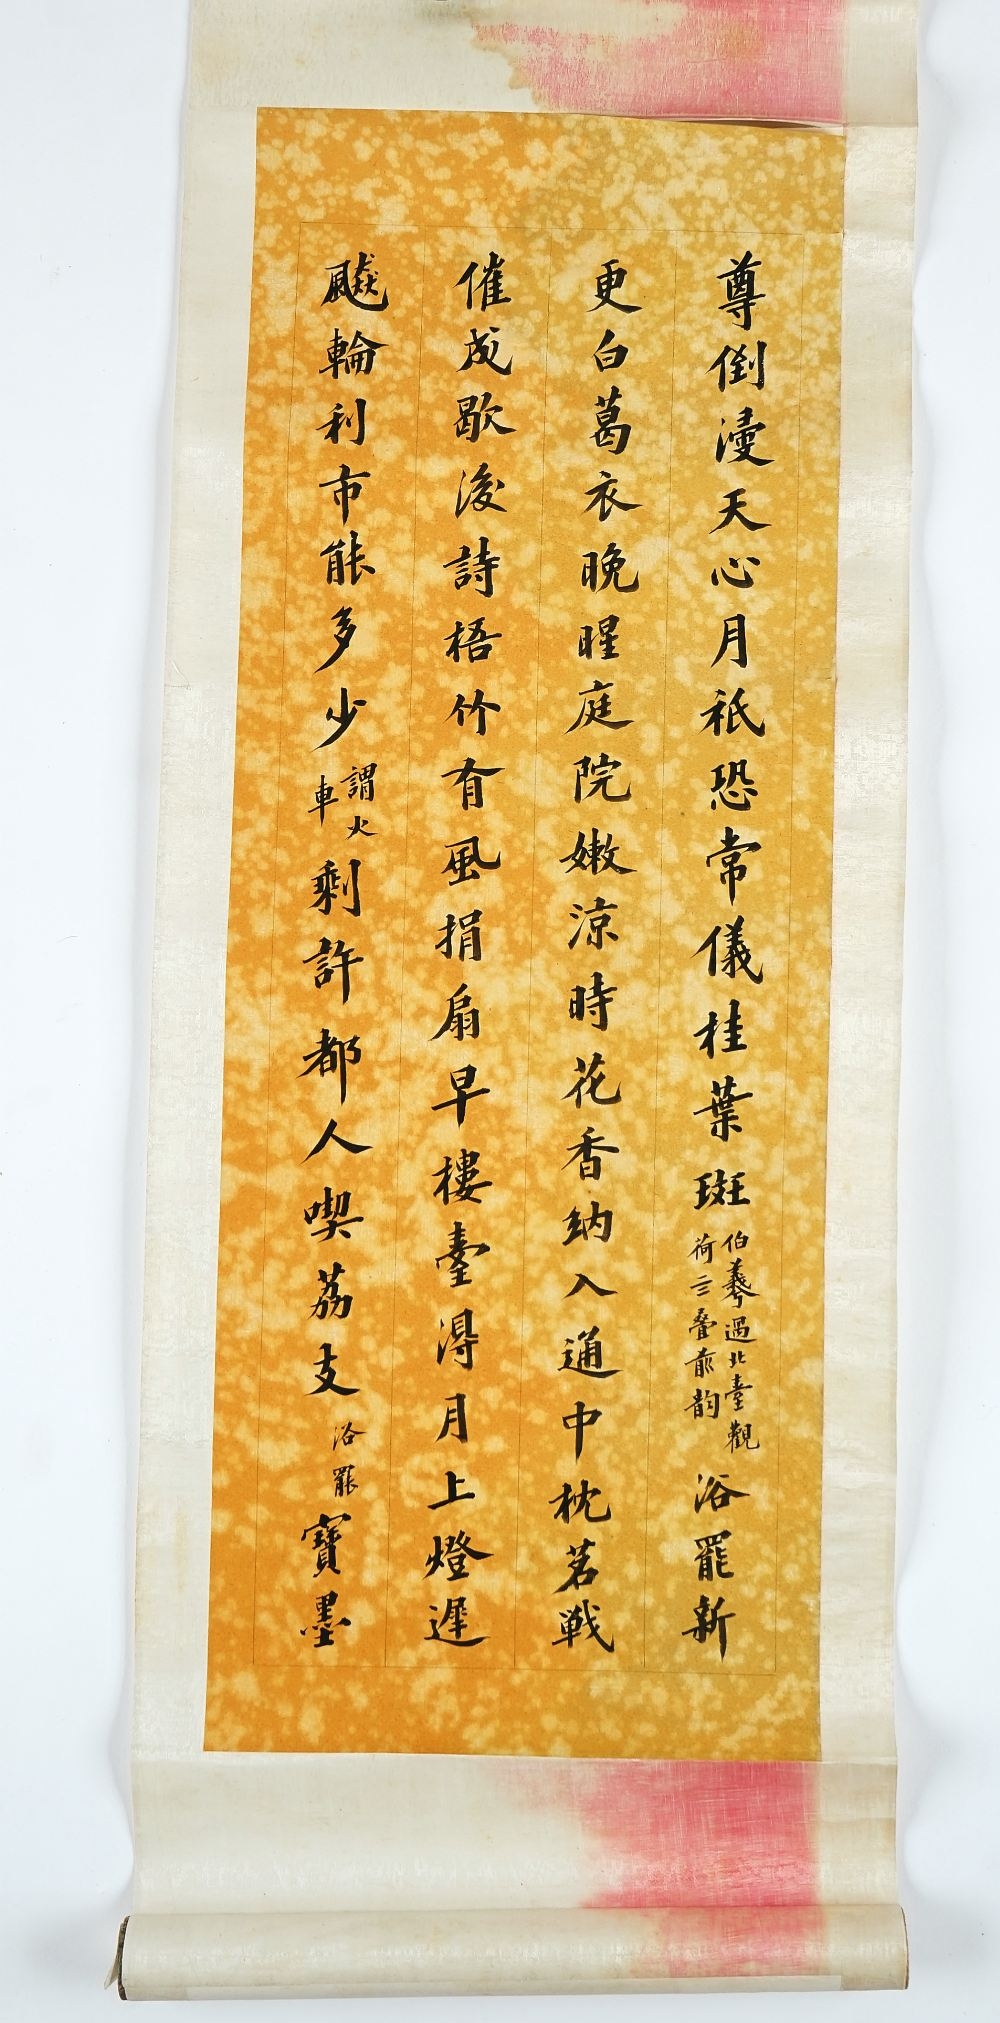 尊倒漫天心月祇恐常儀桂葉斑伯羲過北臺觀荷三叠前韵浴罷新
更白葛衣晚暒庭院嫩涼時花香納入通中枕茗戰
催成歇後詩梧竹有風捐扇早樓臺得月上燈遲
飈輪利市能多少謂火車剩許都人喫荔支浴罷寶墨